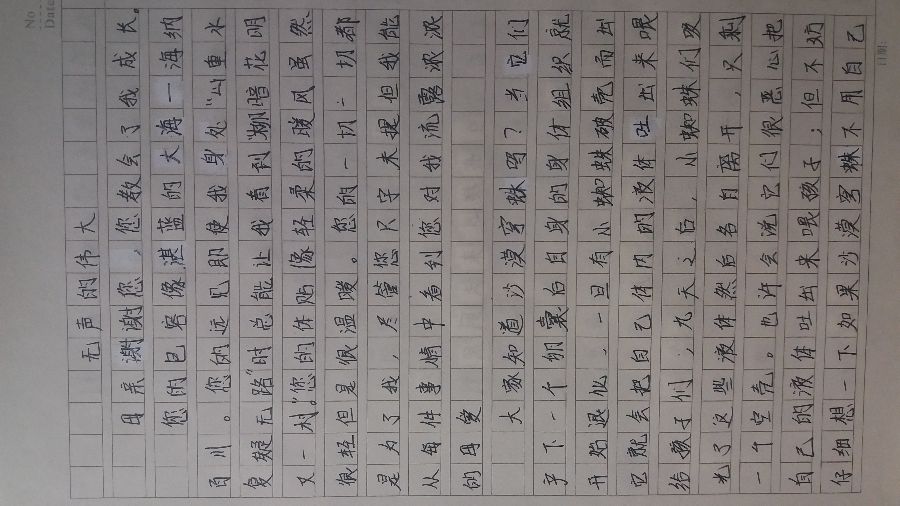 No
Date
日期:
无声的伟大
母亲谢谢您,您教会了我成长。
您的包容像湛蓝的大海一海纳
百川。您的远见即使我身处“山重水
复疑无路”时总能让我看到柳暗花明
又一村。”您的体贴像轻柔的暖风虽然
很轻但是很温暖。您的一切一切都
是为了我,尽管您只字未提但我能
从每件事情中看到您对我流露浓浓
的母爱
大家知道沙漠穹蛛吗?当它们
产下一个卵囊后自身的身体组织就
开始退化,一旦有小蜘蛛破壳而出
它就会把自己体内的液体吐出来喂
给孩子们,九天之后,小蜘蛛们吸
光了这些液体然后各自离开,只剩
一个空壳。也许会说它们很恶心把
自己的液体吐出来喂孩子;但不妨
仔细想一下如果沙漠穹蛛不用自己